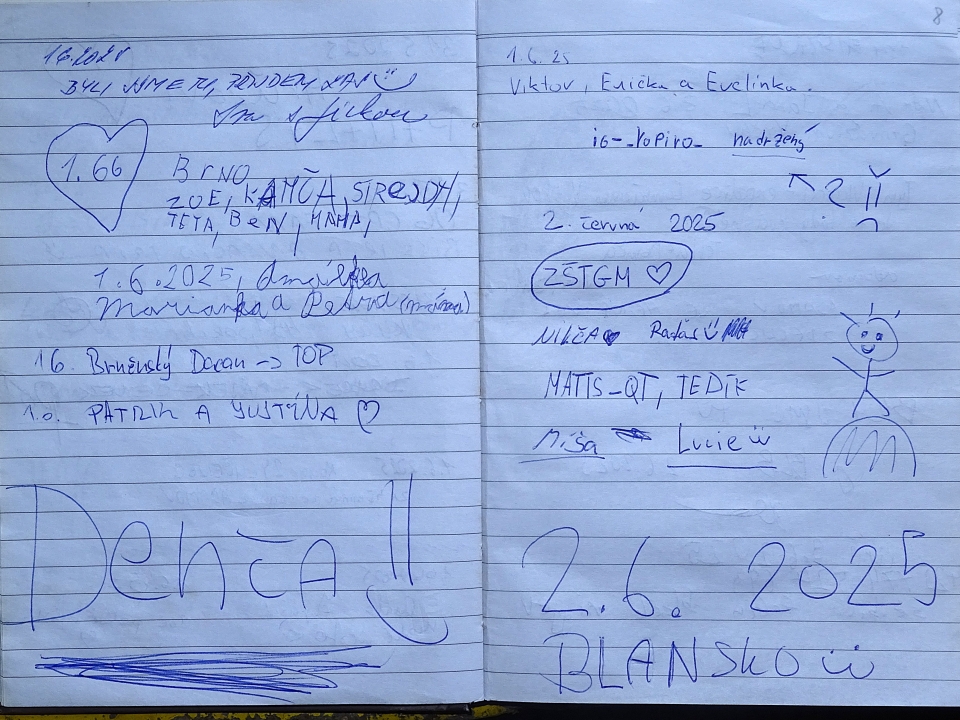 BYLI JSME TU,
1.66 BRNO
ZOE, KAMČA, STREJDY,
TETA, BEN, MAMA,
1.6.2025,
Marianka a Petra
16. Brněnský Doran -> TOP
1.6. PATRIK A JUSTÝNA ♡
DENČA !!
8
1.6.25
Viktor, Enička a Evelínka.
ig-_ropiro_ nadržený
2. červná 2025
ZŠTGM ♡
NIKČA ♥ Radas ü
MATIS_QT, TEDÍK
Míša Lucie ü
2.6. 2025
BLANSKO ü